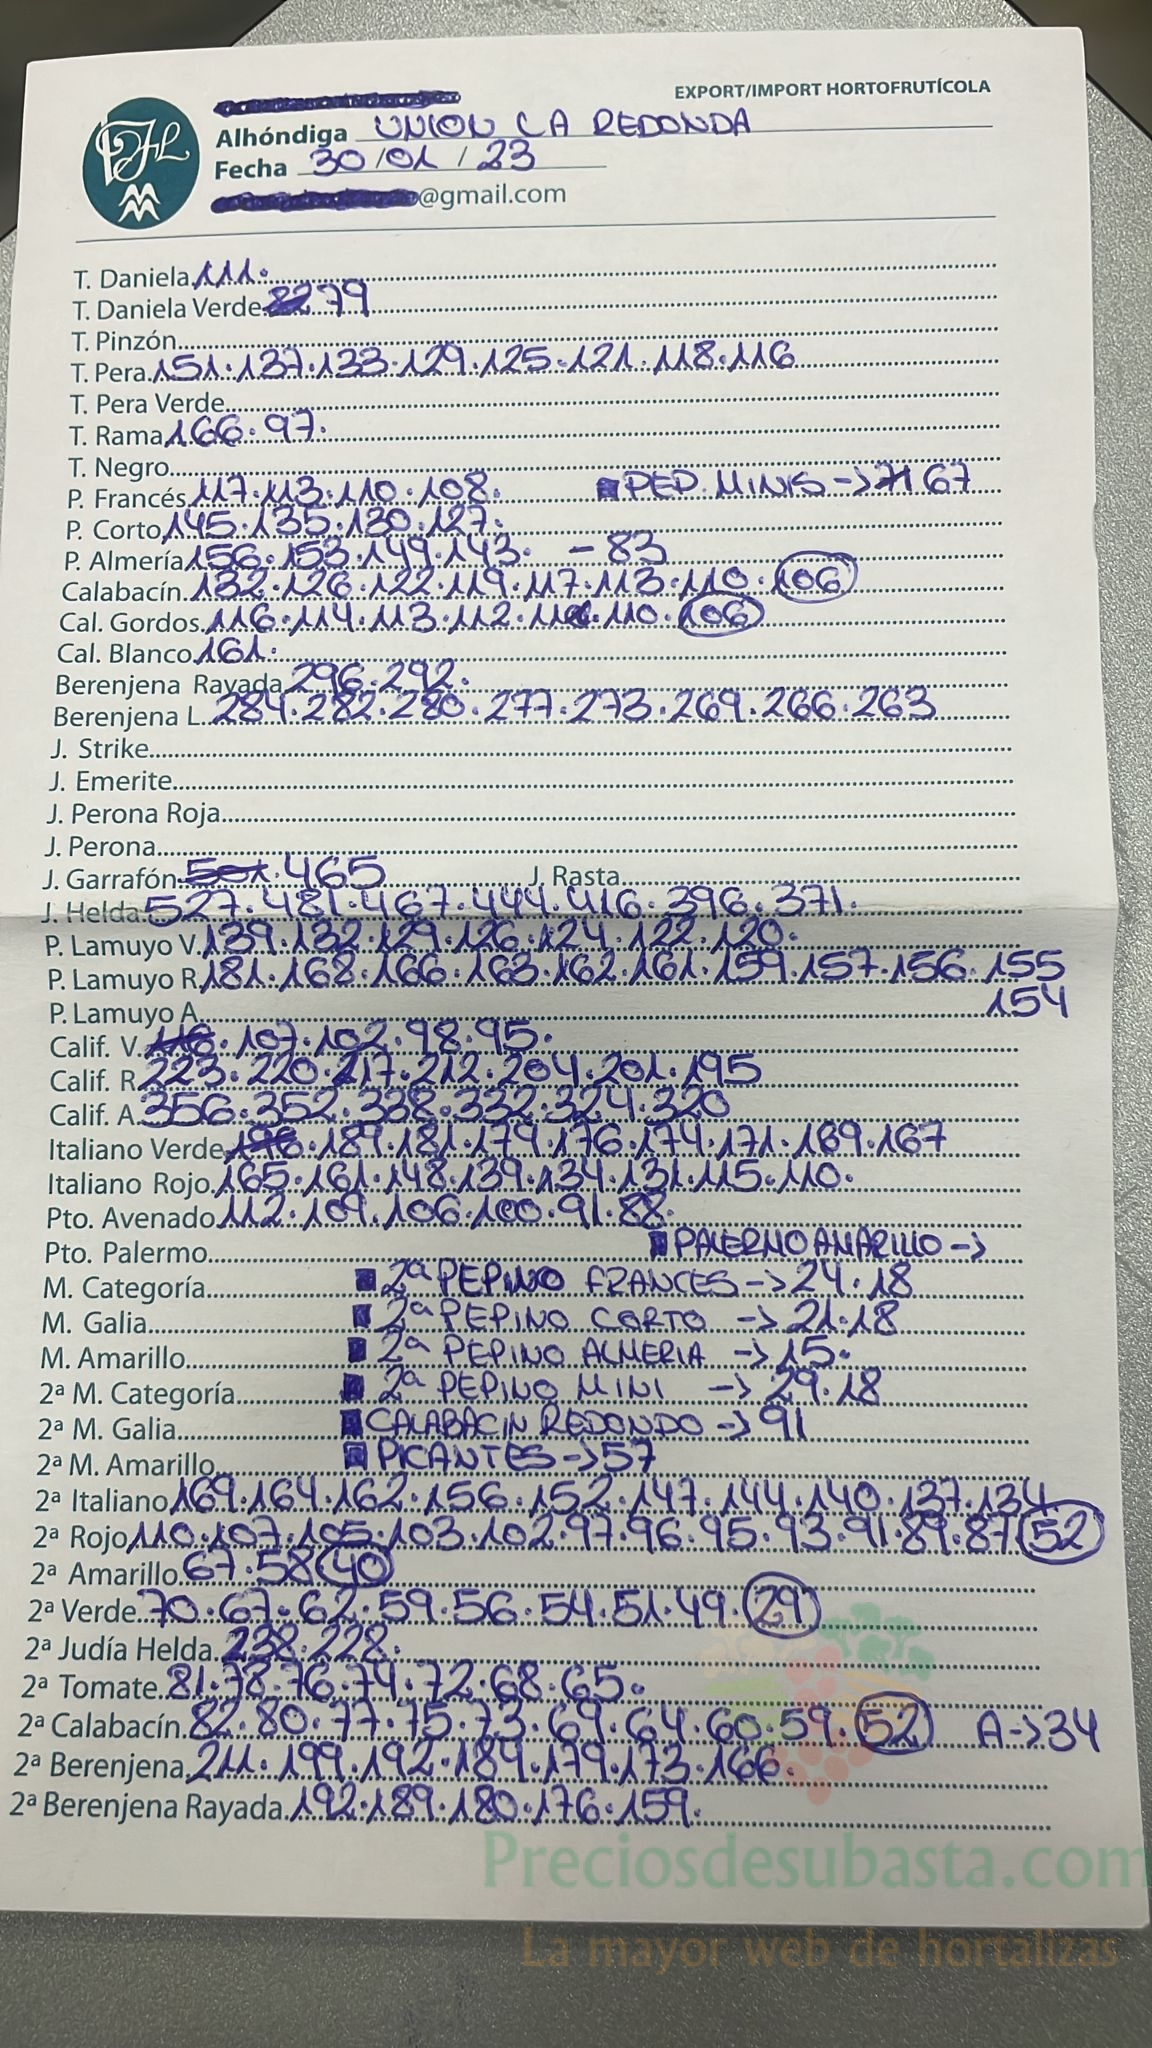 EXPORT/IMPORT HORTOFRUTÍCOLA
Alhóndiga UNION LA REDONDA
Fecha 30/01/23
@gmail.com
T. Daniela 111.
T. Daniela Verde 79
T. Pinzón
T. Pera 151.137.133.129.125.121.118.116
T. Pera Verde
T. Rama 166.97.
T. Negro
P. Francés 117.113.110.108. PEP. MINIS -> 67
P. Corto 145.135.130.127.
P. Almería 156.153.149.143. - 83
Calabacín 132.126.122.119.117.113.110.106
Cal. Gordos 116.114.113.112.111.110.106
Cal. Blanco 161.
Berenjena Rayada 296.292.
Berenjena L. 284.282.280.277.273.269.266.263
J. Strike
J. Emerite
J. Perona Roja
J. Perona
J. Garrafón 501.465 J. Rasta
J. Helda 527.481.467.444.416.396.371.
P. Lamuyo V. 139.132.129.126.124.122.120.
P. Lamuyo R. 181.168.166.163.162.161.159.157.156.155
P. Lamuyo A. 154
Calif. V. 116.107.102.98.95.
Calif. R. 223.220.217.212.204.201.195
Calif. A. 356.352.338.332.324.320
Italiano Verde 196.189.181.179.176.174.171.169.167
Italiano Rojo 165.161.148.139.134.131.115.110.
Pto. Avenado 112.109.106.100.91.88.
Pto. Palermo PALERMO AMARILLO ->
M. Categoría 2ª PEPINO FRANCES -> 24.18
M. Galia 2ª PEPINO CORTO -> 21.18
M. Amarillo 2ª PEPINO ALMERIA -> 15.
2ª M. Categoría 2ª PEPINO MINI -> 29.18
2ª M. Galia CALABACIN REDONDO -> 91
2ª M. Amarillo PICANTES -> 57
2ª Italiano 169.164.162.156.152.147.144.140.137.134
2ª Rojo 110.107.105.103.102.97.96.95.93.91.89.87 52
2ª Amarillo 67.58 40
2ª Verde 70.67.62.59.56.54.51.49. 29
2ª Judía Helda 238.228.
2ª Tomate 81.78.76.74.72.68.65.
2ª Calabacín 82.80.77.75.73.69.64.60.59. 52 A -> 34
2ª Berenjena 211.199.192.189.179.173.166.
2ª Berenjena Rayada 192.189.180.176.159.
Preciosdesubasta.com
La mayor web de hortalizas